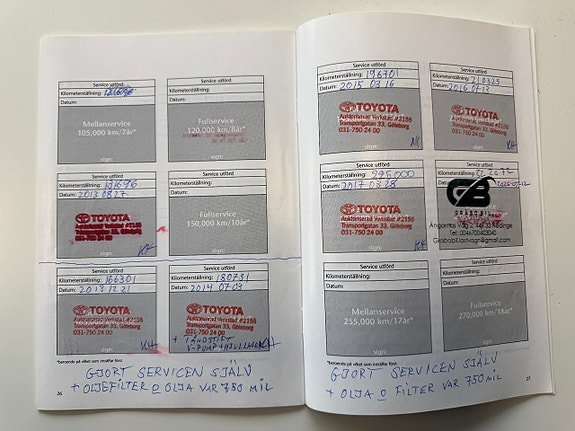 Service utförd
Kilometerställning:
Datum:
Mellanservice
105,000 km/7år*
sign:
Service utförd
Kilometerställning:
Datum:
Fullservice
120,000 km/8år*
sign:
Service utförd
Kilometerställning: 131696
Datum: 2013 08 27
TOYOTA
Auktoriserad Verkstad #2155
Transportgatan 33, Göteborg
031-750 24 00
KH
Service utförd
Kilometerställning:
Datum:
Fullservice
150,000 km/10år*
sign:
Service utförd
Kilometerställning: 166301
Datum: 2013 12 21
TOYOTA
Auktoriserad Verkstad #2155
Transportgatan 33, Göteborg
031-750 24 00
KH
Service utförd
Kilometerställning: 180731
Datum: 2014 07 03
TOYOTA
Auktoriserad Verkstad #2155
Transportgatan 33, Göteborg
031-750 24 00
+ TÄNDSTIFT
V-PUMP + HJULLAGER KH
*Beroende på vilket som inträffar först
GJORT SERVICEN SJÄLV
+ OLJEFILTER O OLJA VAR 750 MIL
26
Service utförd
Kilometerställning: 196701
Datum: 2015 03 16
TOYOTA
Auktoriserad Verkstad #2155
Transportgatan 33, Göteborg
031-750 24 00
Service utförd
Kilometerställning: 210325
Datum: 2016 07 13
TOYOTA
Auktoriserad Verkstad #2155
Transportgatan 33, Göteborg
031-750 24 00
KH
Service utförd
Kilometerställning: 225000
Datum: 2017 03 28
TOYOTA
Auktoriserad Verkstad #2155
Transportgatan 33, Göteborg
031-750 24 00
KH
Service utförd
GB
GLOBABIL
Tel: 0046700403040
Globabil.lastvagn@gmail.com
Service utförd
Kilometerställning:
Datum:
Mellanservice
255,000 km/17år*
sign:
Service utförd
Kilometerställning:
Datum:
Fullservice
270,000 km/18år*
sign:
*Beroende på vilket som inträffar först
GJORT SERVICEN SJÄLV
+ OLJA O FILTER VAR 750 MIL
27